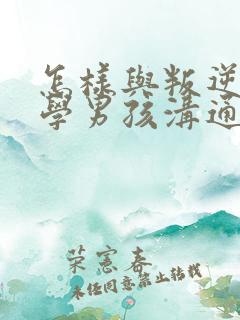 怎樣與叛逆
學男孩溝通
荣憲春
未经同意禁止转载